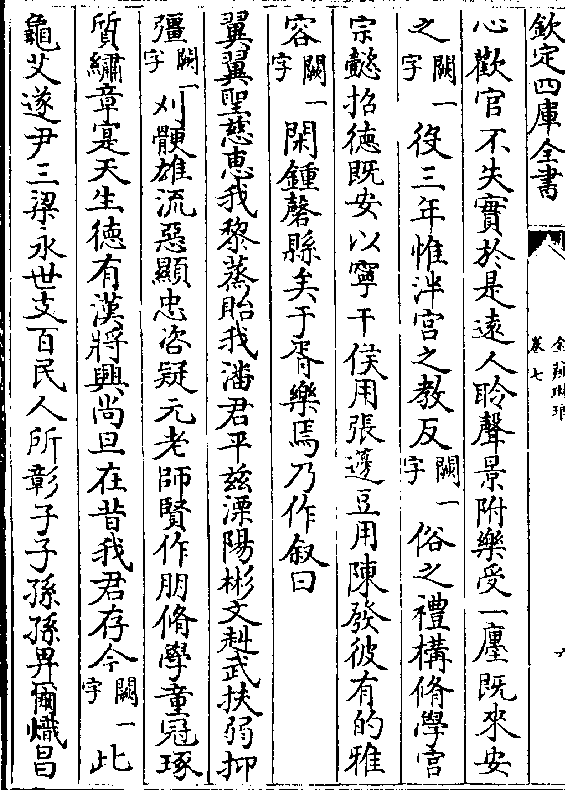 欽定四庫全書
金薤琳琅
卷七
六
心歡官不失實於是遠人聆聲景附樂受一廛既來安
之闕一字役三年惟泮宮之教反闕一字俗之禮構脩學官
宗懿招德既安以寧干侯用張籩豆用陳發彼有的雅
容闕一字閑鍾磬縣矣于胥樂焉乃作叙曰
翼翼聖慈惠我黎蒸貽我潘君平兹溧陽彬文赳武扶弱抑
彊闕一字刈骾雄流惡顯忠咨疑元老師賢作朋脩學童冠琢
質繡章寔天生徳有漢將興尚旦在昔我君存今闕一字此
龜艾遂尹三梁永世支百民人所彰子子孫孫畀爾熾昌